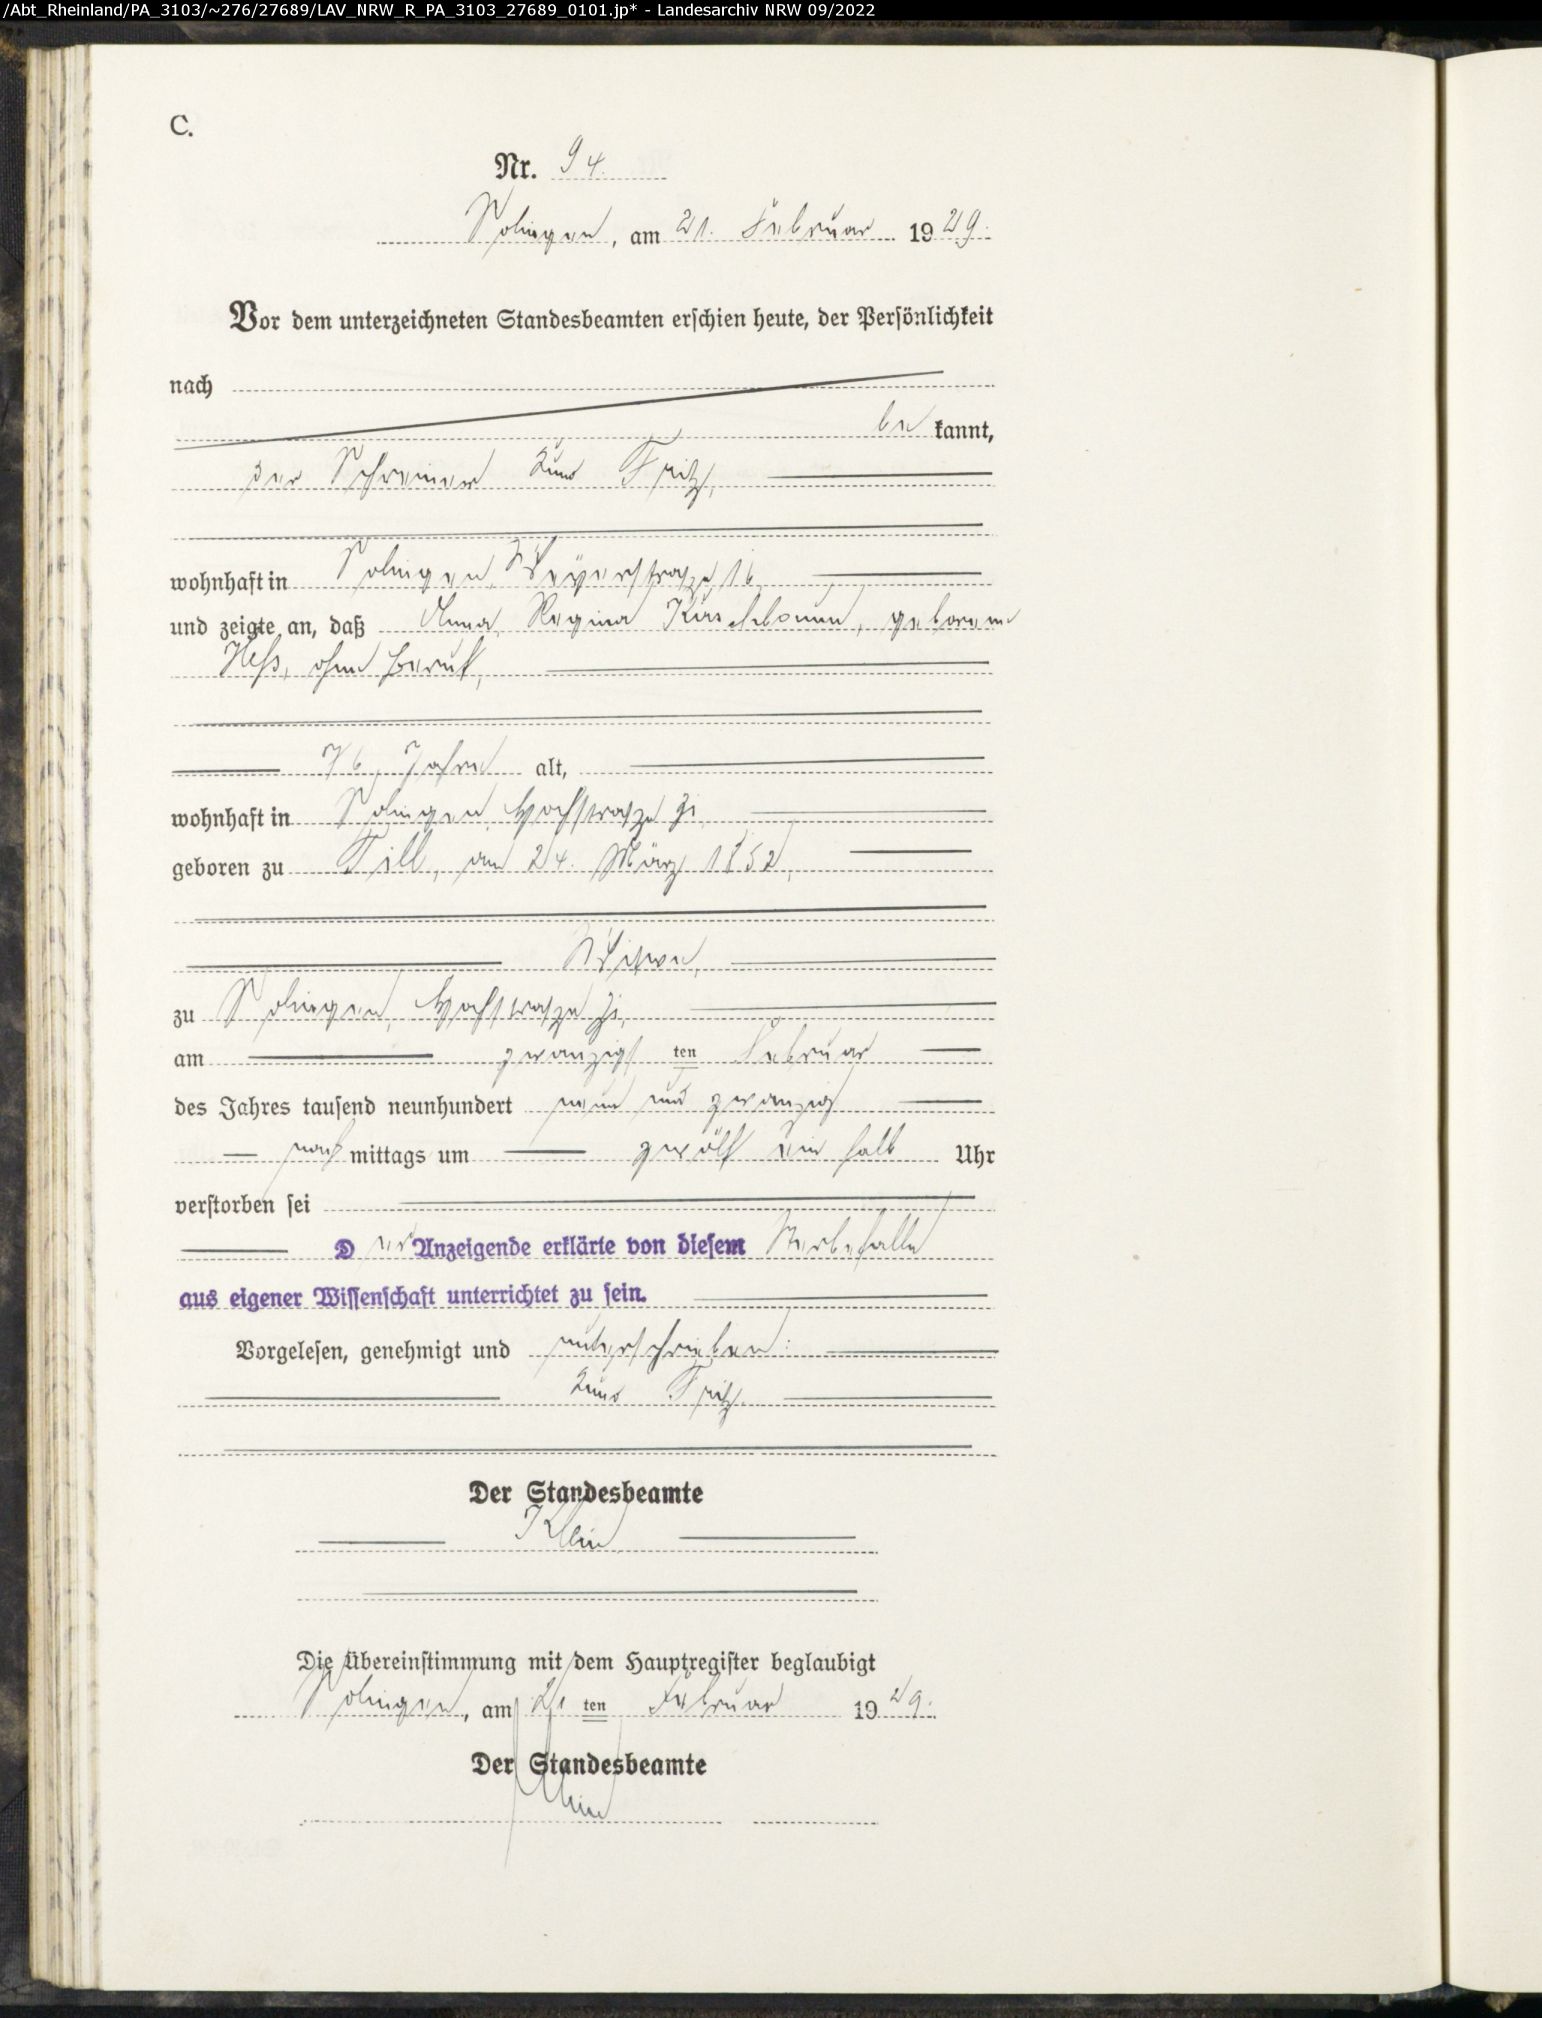 /Abt_Rheinland/PA_3103/~276/27689/LAV_NRW_R_PA_3103_27689_0101.jp* - Landesarchiv NRW 09/2022
C.
Nr. 94.
Solingen, am 21. Februar 1929.
Vor dem unterzeichneten Standesbeamten erschien heute, der Persönlichkeit
nach
be kannt,
der Schreiner Kuno Fritz,
wohnhaft in Solingen, Weyerstrasze 16
und zeigte an, daß Anna Regina Kirschbaum, geborene
Heß, ohne Beruf,
76 Jahre alt,
wohnhaft in Solingen, Hochstrasze
geboren zu Till, am 24. März 1852,
Witwe,
zu Solingen, Hochstrasze
am zwanzigsten Februar
des Jahres tausend neunhundert neun und zwanzig
nachmittags um zwölf ein halb Uhr
verstorben sei
Der Anzeigende erklärte von diesem Sterbefalle
aus eigener Wissenschaft unterrichtet zu sein.
Vorgelesen, genehmigt und unterschrieben:
Kuno Fritz.
Der Standesbeamte
Klein
Die Übereinstimmung mit dem Hauptregister beglaubigt
Solingen, am 21 ten Februar 1929.
Der Standesbeamte
Klein